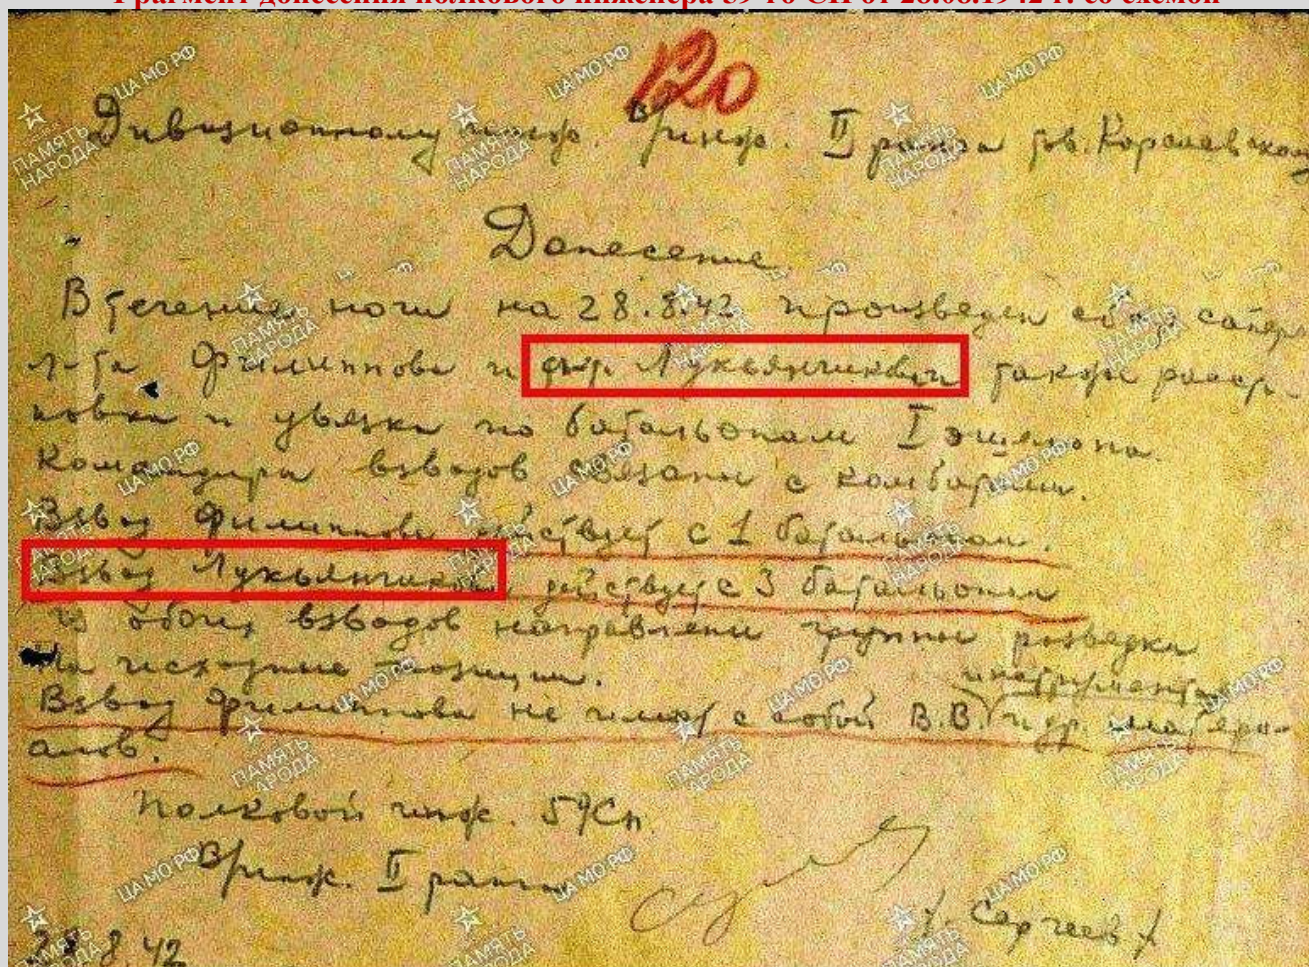 Фрагмент донесения полкового инженера 59-го СП от 28.08.1942 г. со схемой
120
Дивизионному инж. В/инж. II ранга тов. Королевскому
Донесение
В течение ночи на 28.8.42 произведен сбор сапер
л-та Филиппова и Лукьянчикова также
и увязка по батальонам I эшелона.
Командиры взводов связаны с комбатами.
Взвод Филиппова действует с 1 батальоном.
Взвод Лукьянчикова действует с 3 батальоном
Из обоих взводов направлены группы разведки
на исходные позиции.
инструментов
Взвод Филиппова не имеет с собой В.В. и др. матери-
алов.
Полковой инж. 59 Сп.
В/инж. II ранга
/. Сергеев /
28.8.42
ПАМЯТЬ НАРОДА
ЦАМО РФ